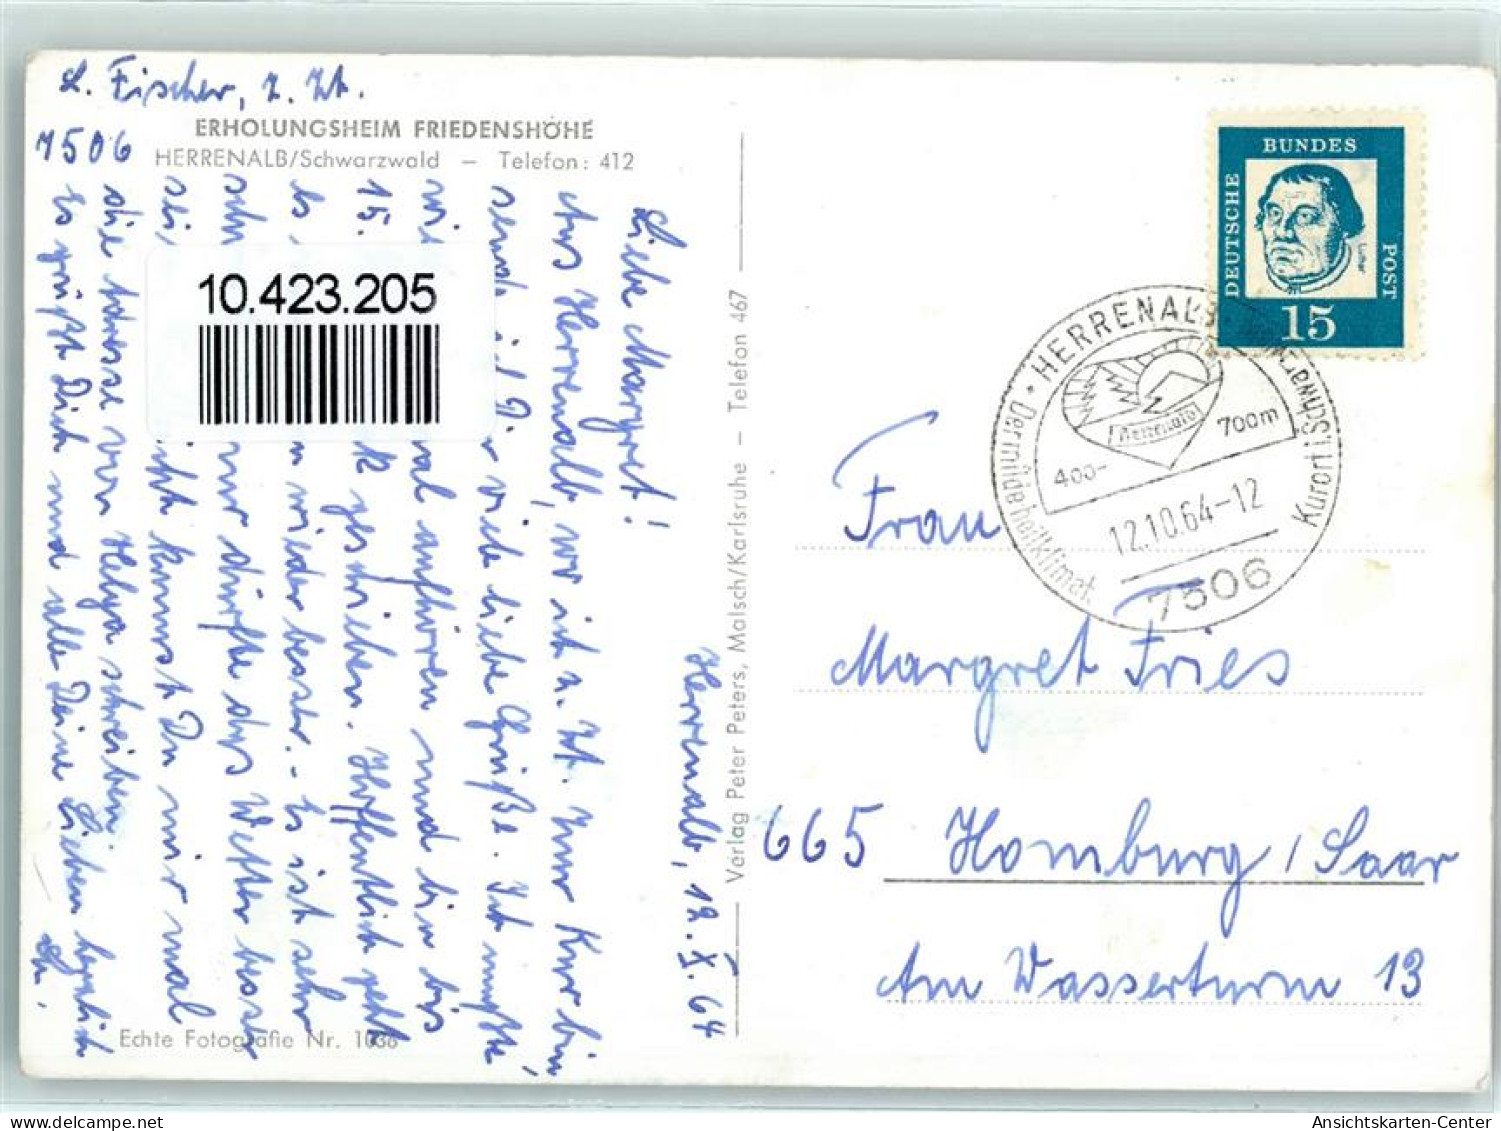 L. Fischer, z. Zt.
7506
ERHOLUNGSHEIM FRIEDENSHÖHE
HERRENALB/Schwarzwald – Telefon: 412
Herrenalb, 12. X. 64
Liebe Margret!
Aus Herrenalb, wo ich z. Zt. zur Kur bin,
viele liebe Grüße. Ich mußte
aufhören und bin bis
15. geschrieben. Hoffentlich geht
es, wieder besser. - Es ist sehr
nur dürfte das Wetter besser
sei, kannst Du mir mal
die Adresse von Helga schreiben.
Es grüßt Dich und alle Deine Lieben herzlich
10.423.205
Echte Fotografie Nr. 1038
Verlag Peter Peters, Malsch/Karlsruhe – Telefon 467
DEUTSCHE
BUNDES
POST
Luther
15
HERRENALB
Kurort i. Schwarzw.
Der milde heilklimat.
Herrenalb
400–
700m
12.10.64–12
7506
Frau
Margret Fries
665 Homburg / Saar
Am Wasserturm 13
Ansichtskarten-Center